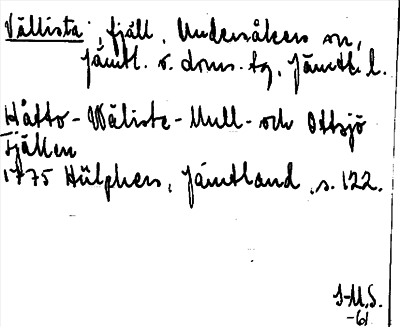 Vällista, fjäll, Undersåkers sn,
Jämtl. v. doms. tg, Jämtl. l.
Håtto-Wäliste-Mull- och Ottsjö
Fjällen
1775 Hülphers, Jämtland, s. 122.
J-M.S.
-61